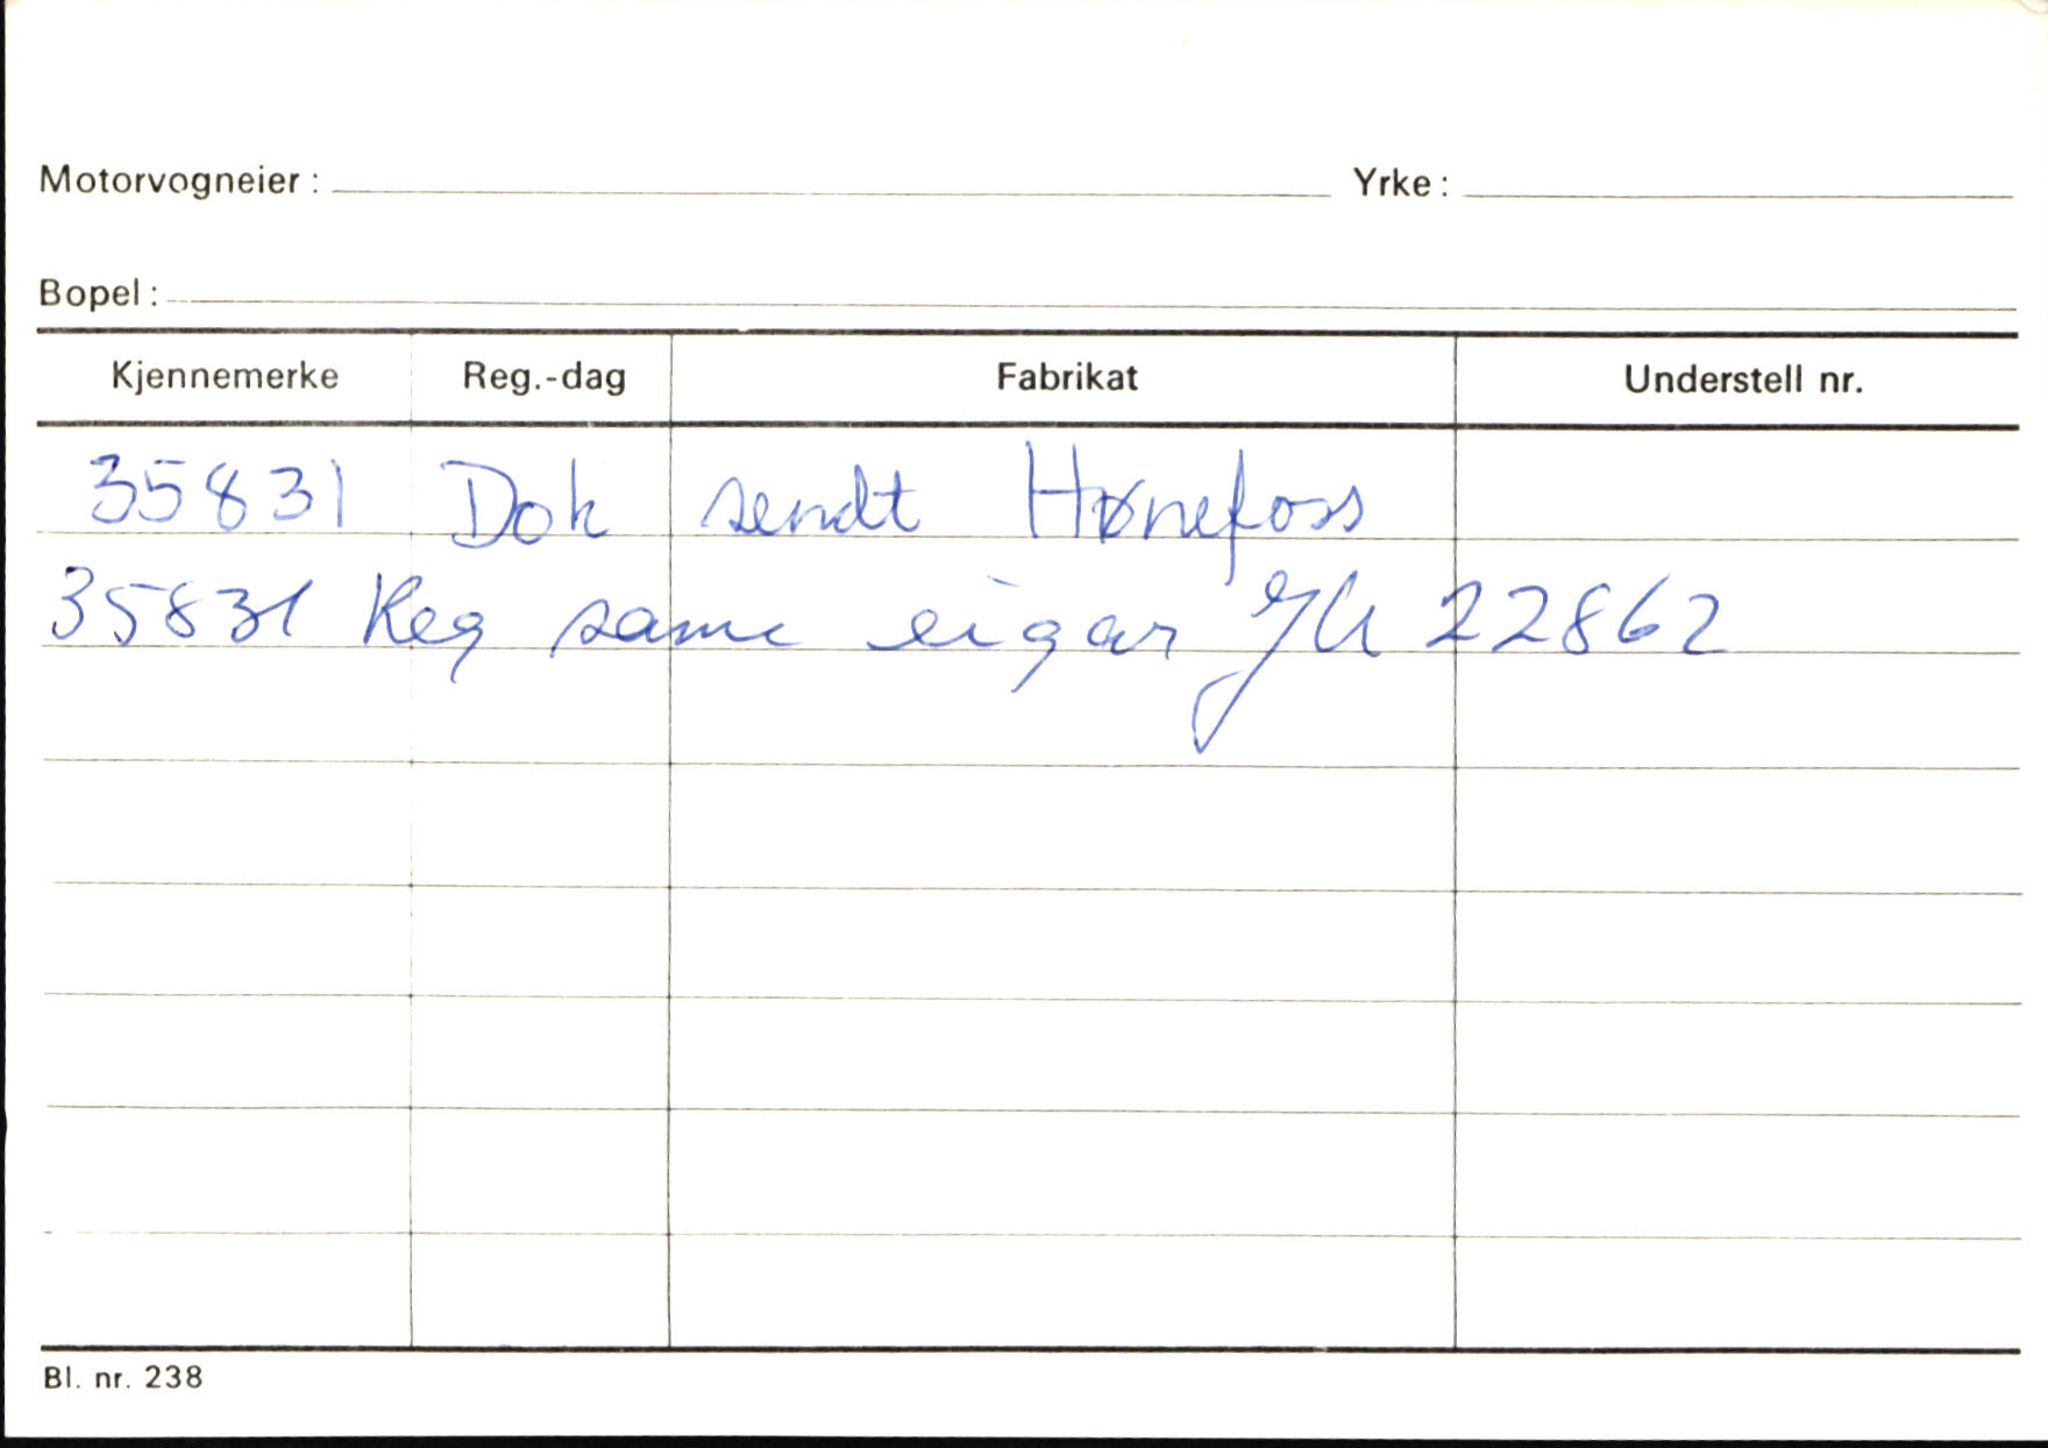 Motorvogneier: Yrke:
Bopel:
Kjennemerke Reg.-dag Fabrikat Understell nr.
35831 Dok sendt Hønefoss
35831 Reg same eigar 22862
Bl. nr. 238